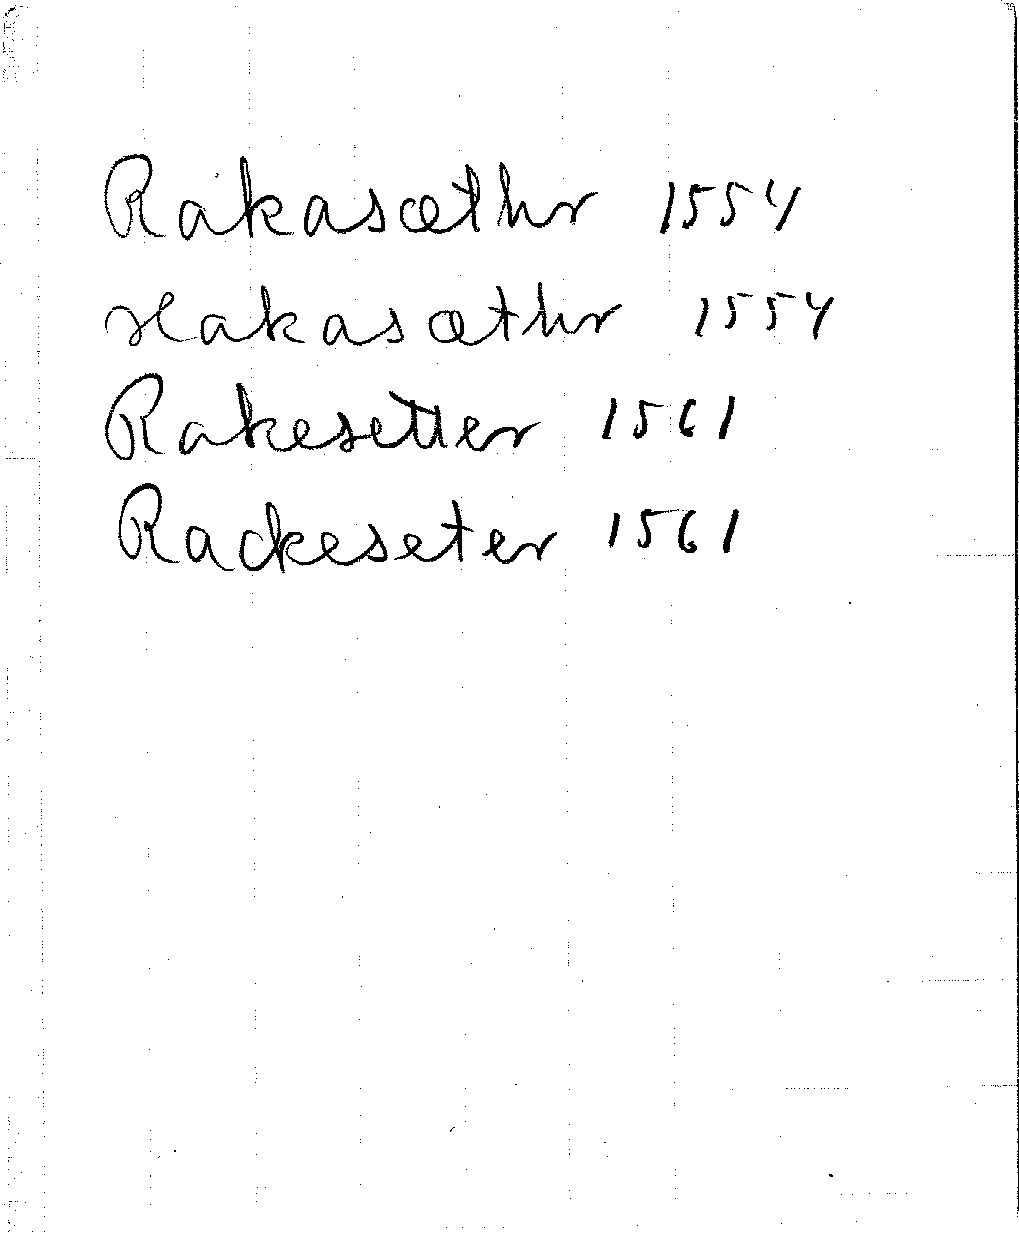 Rakasæthr 1554
Hakasæthr 1554
Rakesetter 1561
Rackeseter 1561